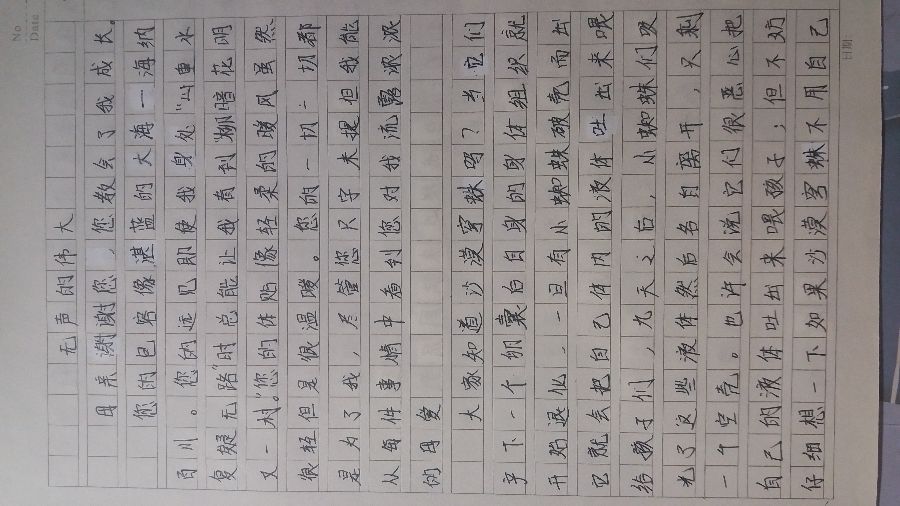 No
Date
日期:
无声的伟大
母亲谢谢您,您教会了我成长。
您的包容像湛蓝的大海一海纳
百川。您的远见即使我身处"山重水
复疑无路"时总能让我看到"柳暗花明
又一村。"您的体贴像轻柔的暖风虽然
很轻但是很温暖。您的一切一切都
是为了我,尽管您只字未提但我能
从每件事情中看到您对我流露浓浓
的母爱
大家知道沙漠穹蛛吗?当它们
产下一个卵囊后自身的身体组织就
开始退化,一旦有小蜘蛛破壳而出
它就会把自己体内的液体吐出来喂
给孩子们,九天之后,小蜘蛛们吸
光了这些液体然后各自离开,只剩
一个空壳。也许会说它们很恶心把
自己的液体吐出来喂孩子;但不妨
仔细想一下如果沙漠穹蛛不用自己